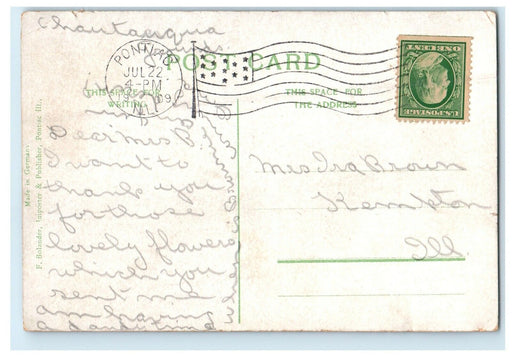 Chautauqua
Grounds
POST CARD
PONTIAC
JUL 22
4-PM
1909
ILL.
THIS SPACE FOR
WRITING
THIS SPACE FOR
THE ADDRESS
ONE CENT
U.S. POSTAGE
Dear Mrs B
I want to
thank you
for those
lovely flowers
which you
sent me
am having
a dandy time
Mrs Ira Brown
Kempton
Ill.
Made in Germany.
F. Bolander, Importer & Publisher, Pontiac Ill.